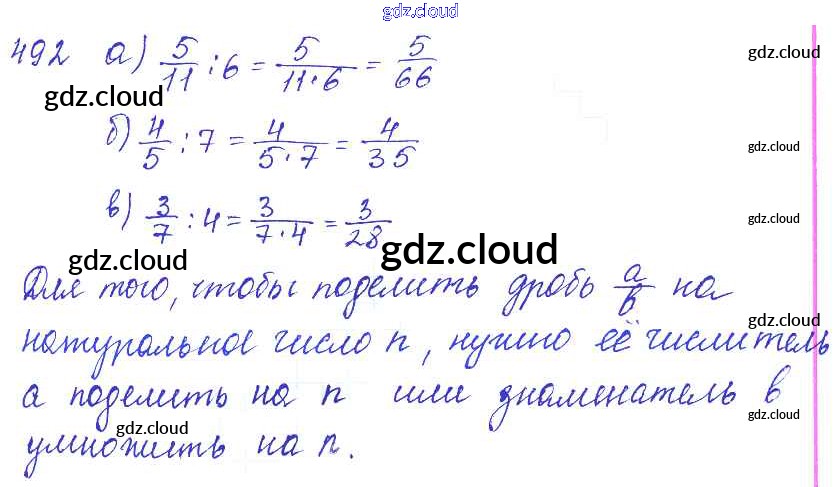 gdz.cloud
492 а) 5/11 : 6 = 5/11·6 = 5/66
gdz.cloud
gdz.cloud
б) 4/5 : 7 = 4/5·7 = 4/35
gdz.cloud
в) 3/7 : 4 = 3/7·4 = 3/28
gdz.cloud
gdz.cloud
gdz.cloud
Для того, чтобы поделить дробь а/в на
gdz.cloud
натуральное число n, нужно её числитель
а поделить на n или знаменатель в
gdz.cloud
gdz.cloud
умножить на n.